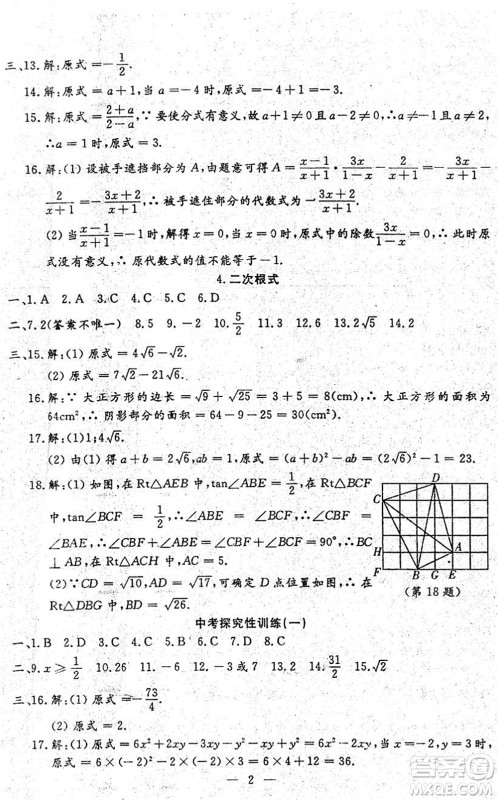 三、13. 解:原式=-1/2.
14. 解:原式=a+1,当a=-4时,原式=-3.
15. 解:原式=(2+a)/(2-a),∵要使分式有意义,故a+1≠0且a-2≠0,∴a≠-1且a≠2,
∴当a=1时,原式=3.
16. 解:(1)设被手遮挡部分为A,由题意可得A=(x-1)/(x+1)·3x/(1-x)-2/(x+1)=-3x/(x+1)-
2/(x+1)=-(3x+2)/(x+1),∴被手遮住部分的代数式为-(3x+2)/(x+1).
(2)当(x-1)/(x+1)=-1时,解得x=0,当x=0时,原式中的除数3x/(1-x)=0,∴此时原
式没有意义,∴原代数式的值不能等于-1.
4. 二次根式
一、1. A 2. A 3. C 4. C 5. C 6. D
二、7. 2(答案不唯一) 8. 5 9. -2 10. 5/2 11. 0 12. 2√3-2 13. √3 14. 2
三、15. 解:(1)原式=4√6-√2.
(2)原式=7√2-21√6.
16. 解:(1)大正方形的边长=√9+√25=3+5=8(cm),∴大正方形的面积为
64cm²,∴阴影部分的面积=64-9-25=30(cm²).
17. 解:(1)1;4√6.
(2)由(1)得a+b=2√6,ab=1,∴原式=(a+b)²-ab=(2√6)²-1=23.
18. 解:(1)如图,在Rt△AEB中,tan∠ABE=1/2,在Rt△BCF
中,tan∠BCF=1/2,∴∠ABE=∠BCF,∵∠ABE+
∠BAE=90°,∴∠ABE+∠BCF=90°,∴BC
⊥AB,在Rt△ACH中,AC=5.
(2)∵CD=√10,AD=√17,可确定D点位置如图,在
Rt△DBG中,BD=√26.
D
C
H
A
F
B G E
(第18题)
中考探究性训练(一)
一、1. B 2. D 3. C 4. B 5. A 6. C 7. D 8. C
二、9. x≥1/2 10. 26 11. -2 12. 9 13. -6或6 14. 31/2 15. √2
三、16. 解:(1)原式=-73/4.
(2)原式=2.
17. 解:(1)原式=6x²+2xy-3xy-y²-6x²+6xy=5xy-y²,当x=-2,y=3时,
原式=5×(-2)×3-3²=-39.
原式=6×(-2)²-6×(-2)+12=36.
— 2 —